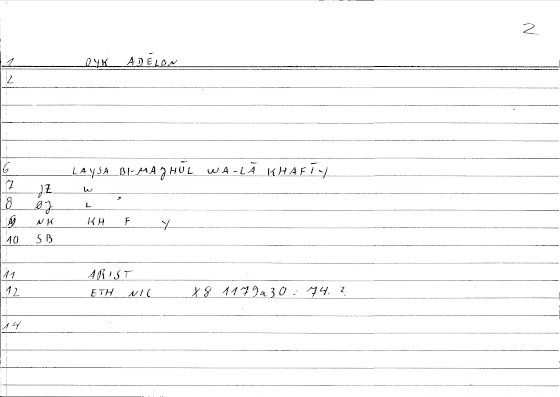 2
1 OYK ADĒLON
2
6 LAYSA BI-MAJHŪL WA-LĀ KHAFĪY
7 JZ W
8 ØJ L
9 NK KH F Y
10 SB
11 ARIST
12 ETH NIC X8 1179a30 : 74. 2.
14